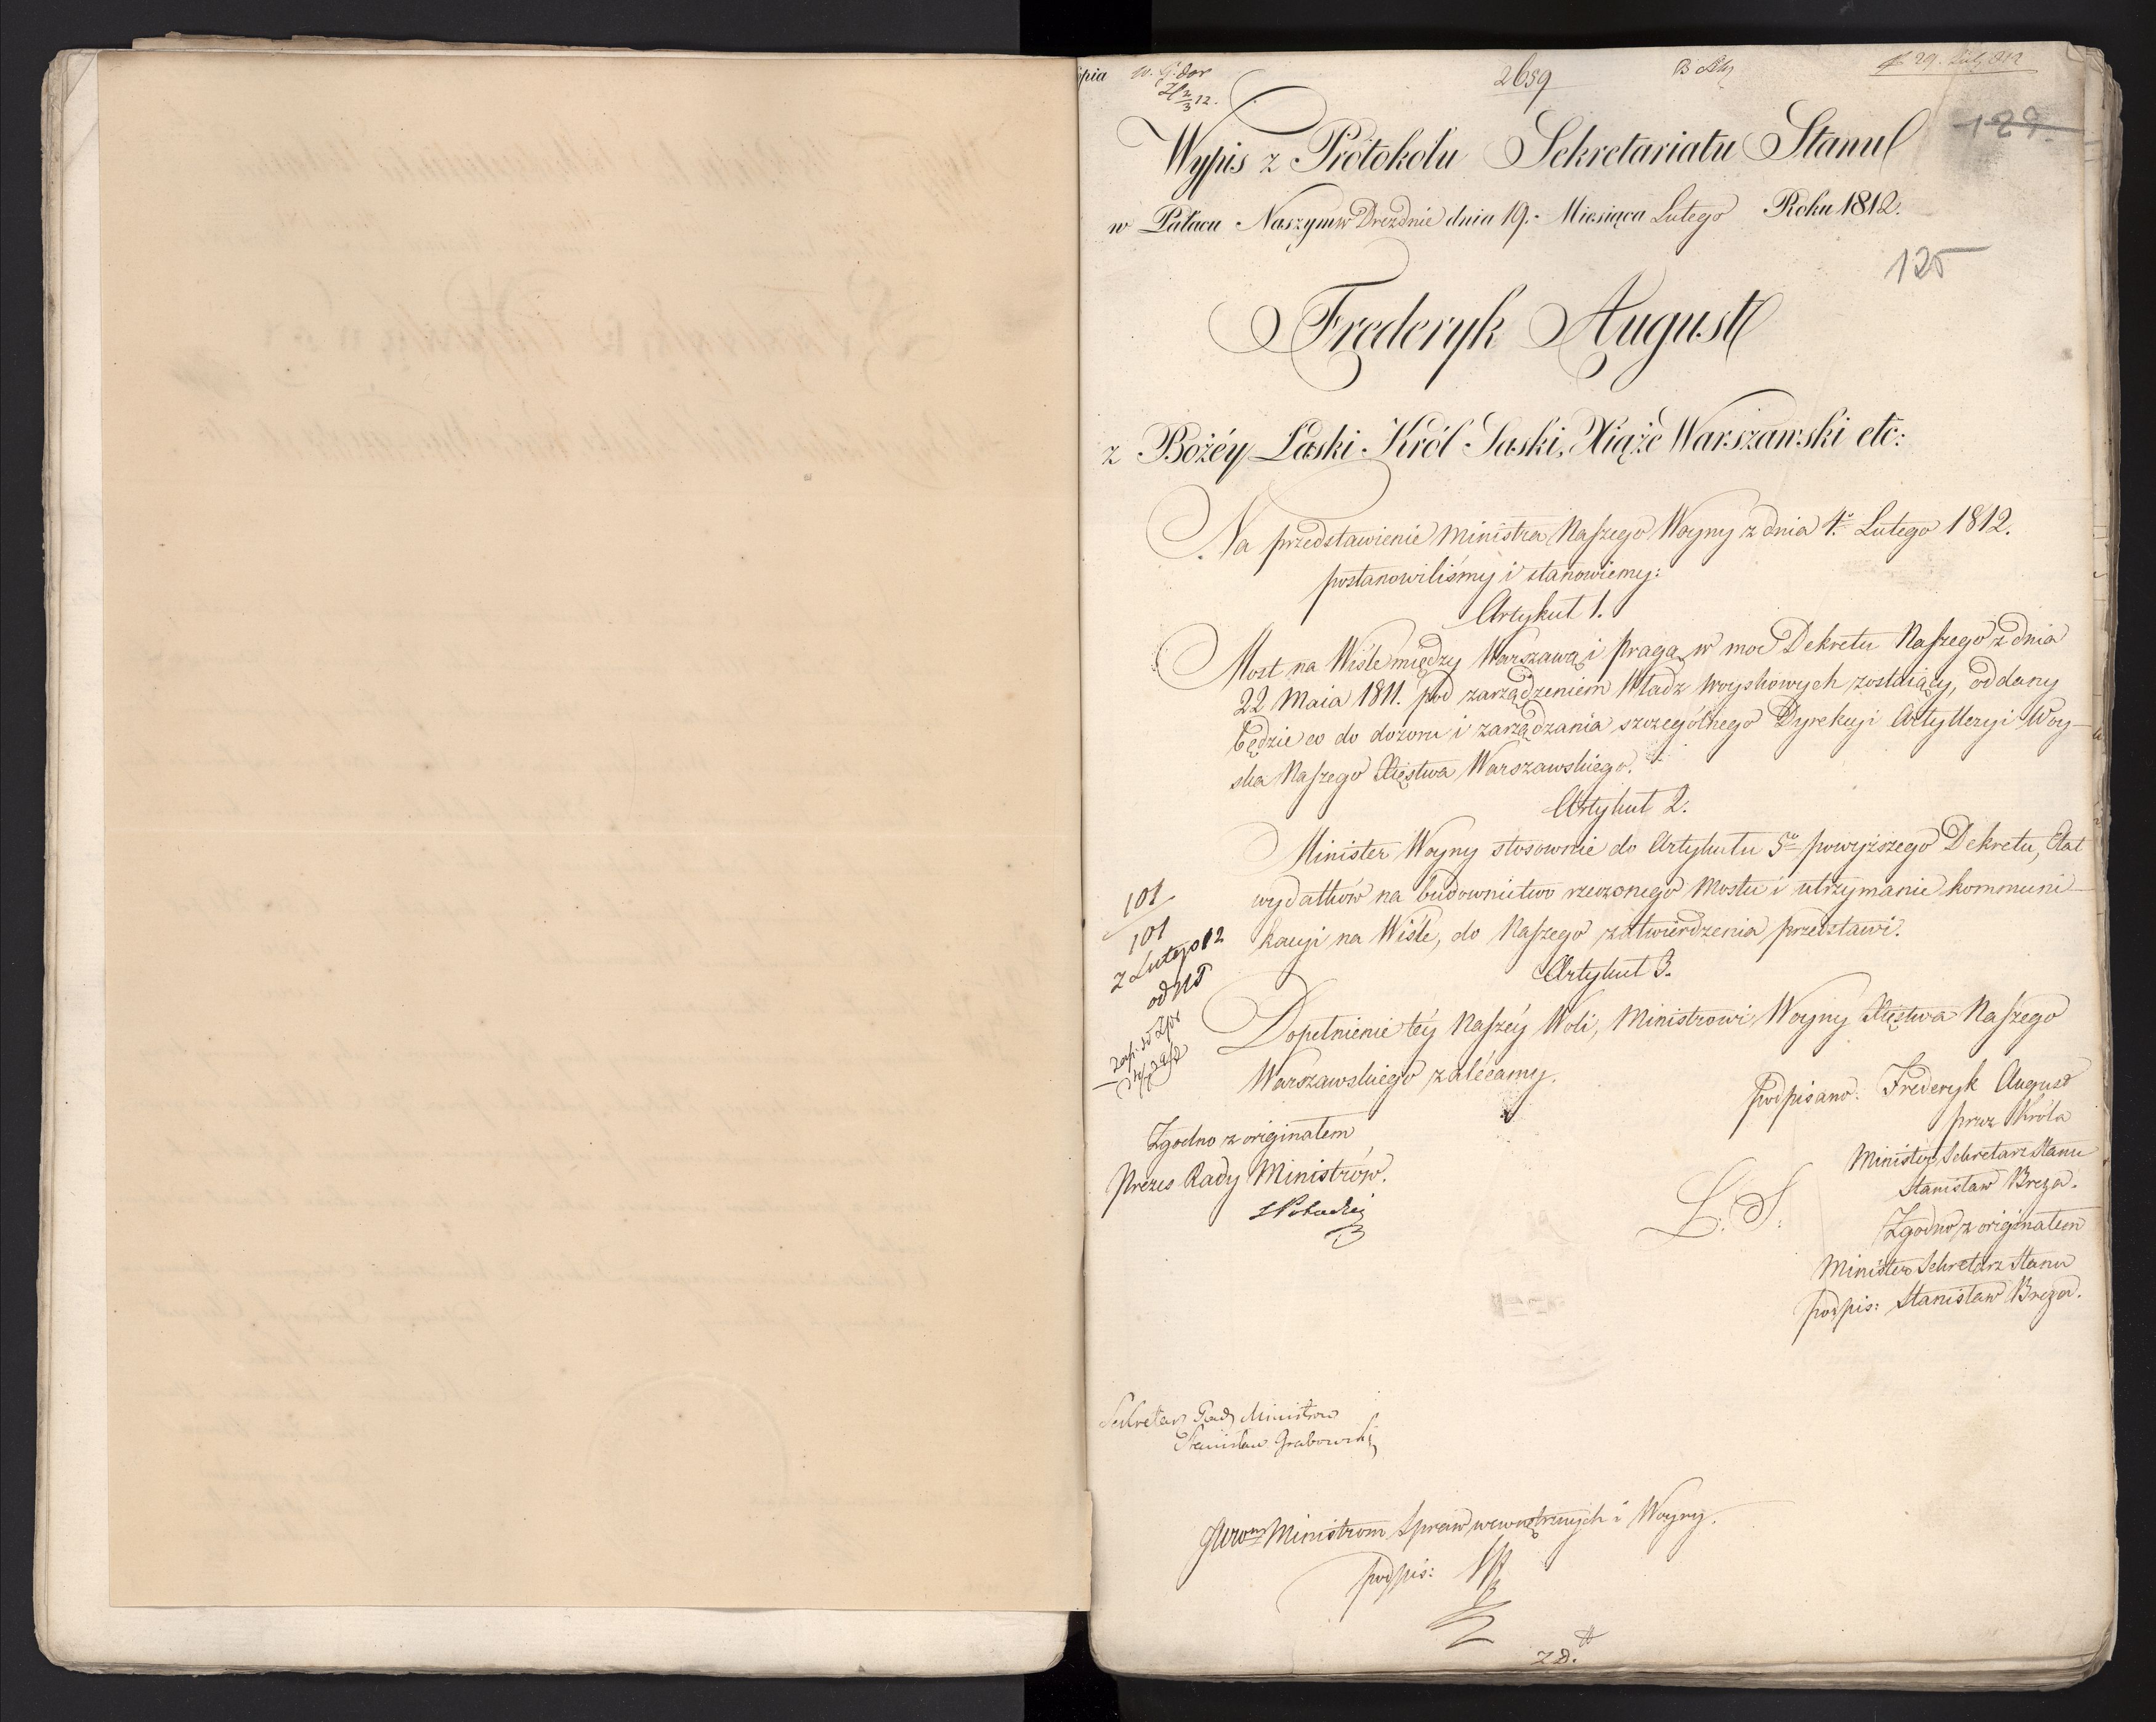 2659
129.
Wypis z Protokołu Sekretariatu Stanu
w Pałacu Naszym w Dreznie dnia 19. Miesiąca Lutego Roku 1812.
125
Frederyk August
z Bożéy Łaski Król Saski, Xiąże Warszawski etc:
Na przedstawienie Ministra Naszego Woyny z dnia 4.º Lutego 1812.
postanowiliśmy i stanowiemy:
Artykuł 1.
Most na Wiśle między Warszawą i Pragą w moc Dekretu Naszego z dnia
22 Maia 1811. pod zarządzeniem Władz Woyskowych zostaiący, oddany
będzie co do dozoru i zarządzania szczególnego Dyrekcyi Artylleryi Woy-
ska Naszego Xięstwa Warszawskiego.
Artykuł 2.
Minister Woyny stosownie do Artykułu 5go powyższego Dekretu, Etat
wydatków na budownictwo rzeczonego Mostu i utrzymanie kommuni-
kacyi na Wiśle, do Naszego zatwierdzenia przedstawi.
101
101
2 Lutego 12
Artykuł 3.
Dopełnienie téy Naszéy Woli, Ministrowi Woyny Xięstwa Naszego
Warszawskiego zalécamy.
podpisano: Frederyk August
przez Króla
Minister Sekretarz Stanu
Stanisław Breza.
L. S.
Zgodno z originałem
Minister Sekretarz Stanu
podpis: Stanisław Breza.
Zgodno z originałem
Prezes Rady Ministrów.
Sekretarz Rady Ministrow
Stanisław Grabowski
Ministrom Spraw wewnętrznych i Woyny.
podpis: